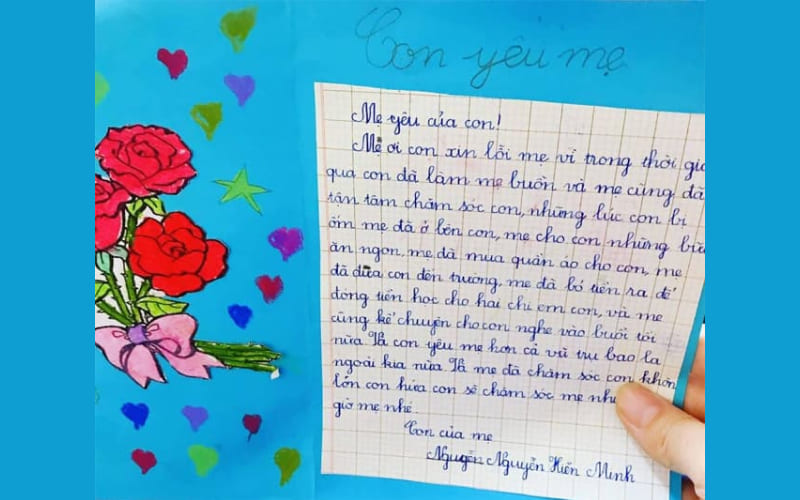 Con yêu mẹ
Mẹ yêu của con!
Mẹ ơi con xin lỗi mẹ vì trong thời gia
qua con đã làm mẹ buồn và mẹ cũng đã
tận tâm chăm sóc con, những lúc con bị
ốm mẹ đã ở bên con, mẹ cho con những bữa
ăn ngon, mẹ đã mua quần áo cho con, mẹ
đã đưa con đến trường, mẹ đã bỏ tiền ra để
đóng tiền học cho hai chị em con, và mẹ
cũng kể chuyện cho con nghe vào buổi tối
nữa. Và con yêu mẹ hơn cả vũ trụ bao la
ngoài kia nữa. Và mẹ đã chăm sóc con khôn
lớn con hứa con sẽ chăm sóc mẹ như
giờ mẹ nhé.
Con của mẹ
Nguyễn Nguyễn Hiền Minh